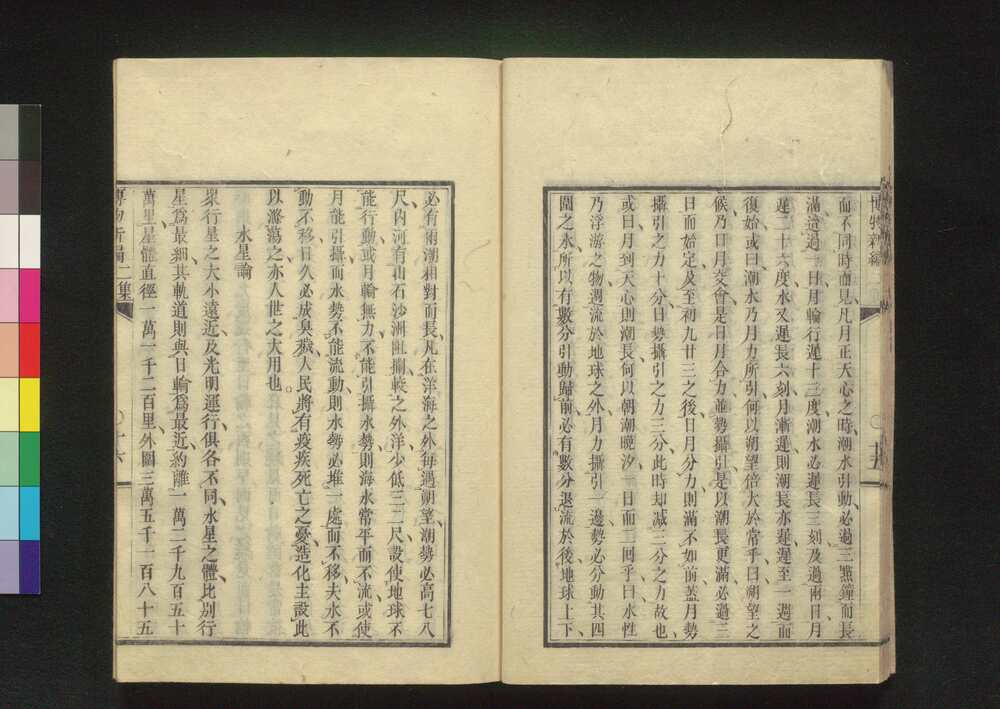 博物新編
而不同時而見凡月正天心之時潮水引動必過三點鐘而長
滿這過一日月輪行遲十三度潮水必遲長三刻及過兩日月
遲二十六度水又遲長六刻月漸遲則潮長亦遲遲至一週而
復始或曰潮水乃月力所引何以朔望倍大於常乎曰朔望之
候乃日月交會是日月合力並勢攝引是以潮長更滿必過三
日而始定及至初九廿三之後日月分力則滿不如前蓋月勢
攝引之力十分日勢攝引之力三分此時却減三分之力故也
或曰月到天心則潮長何以朝潮晚汐一日而二回乎曰水性
乃浮游之物週流於地球之外月力攝引一邊勢必分動其四
圍之水所以有數分引動歸前必有數分退流於後地球上下
十五
必有兩潮相對而長凡在洋海之外每遇朔望潮勢必高七八
尺內河有山石沙洲阻攔較之外洋少低三二尺設使地球不
能行動或月輪無力不能引攝水勢則海水常平而不流或使
月能引攝而水勢不能流動則水勢必堆一處而不移夫水不
動不移日久必成臭穢人民將有疫疾死亡之憂造化主設此
以滌蕩之亦人世之大用也。
水星論
眾行星之大小遠近及光明運行俱各不同水星之體比別行
星爲最細其軌道則與日輪爲最近約離一萬二千九百五十
萬里星體直徑一萬一千二百里外圍三萬五千一百八十五
博物新編二集
十六